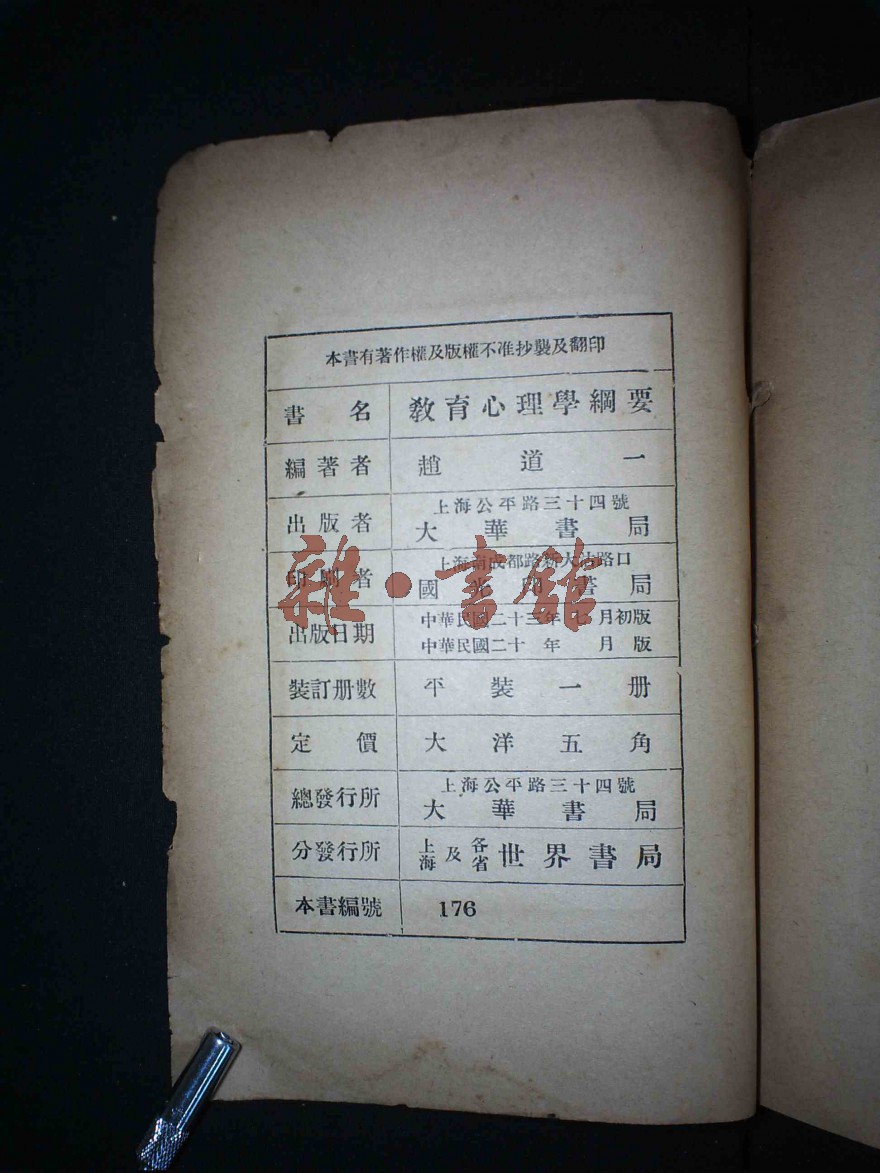 本書有著作權及版權不准抄襲及翻印
書名 教育心理學綱要
編著者 趙道一
出版者 上海公平路三十四號
大華書局
印刷者 上海南成都路新大沽路口
國光印書局
出版日期 中華民國二十三年七月初版
中華民國二十 年 月 版
裝訂册數 平裝一册
定價 大洋五角
總發行所 上海公平路三十四號
大華書局
分發行所 上海及各省世界書局
本書編號 176
雜·書館